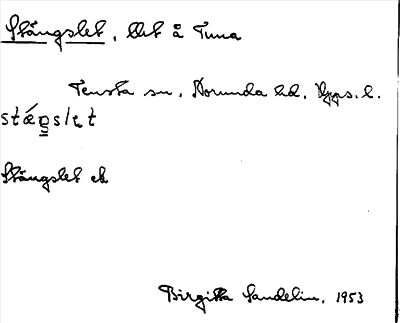 Stängslet, litt å Tuna
Tensta sn, Norunda hd, Upps. l.
stæ´ŋslɛt
Stängslet ek
Birgitta Sandelin, 1953